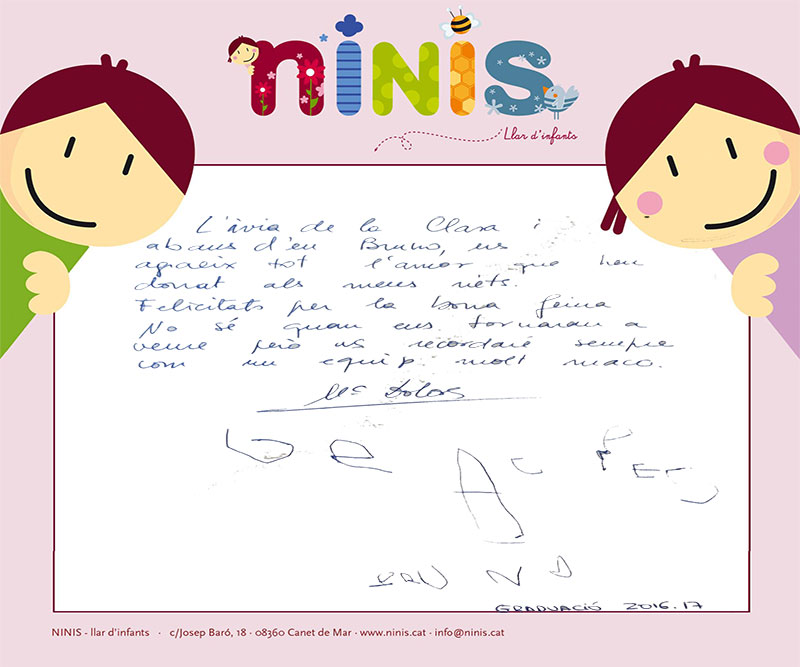 NINIS
Llar d'infants
L'àvia de la Clara i
abans d'en Bruno, us
agraeix tot l'amor que heu
donat als meus néts.
Felicitats per la bona feina
No sé quan ens tornaran a
veure però us recordaré sempre
com un equip molt maco.
Mª Dolos
GRADUACIÓ 2016.17
NINIS - llar d'infants · c/Josep Baró, 18 · 08360 Canet de Mar · www.ninis.cat · info@ninis.cat